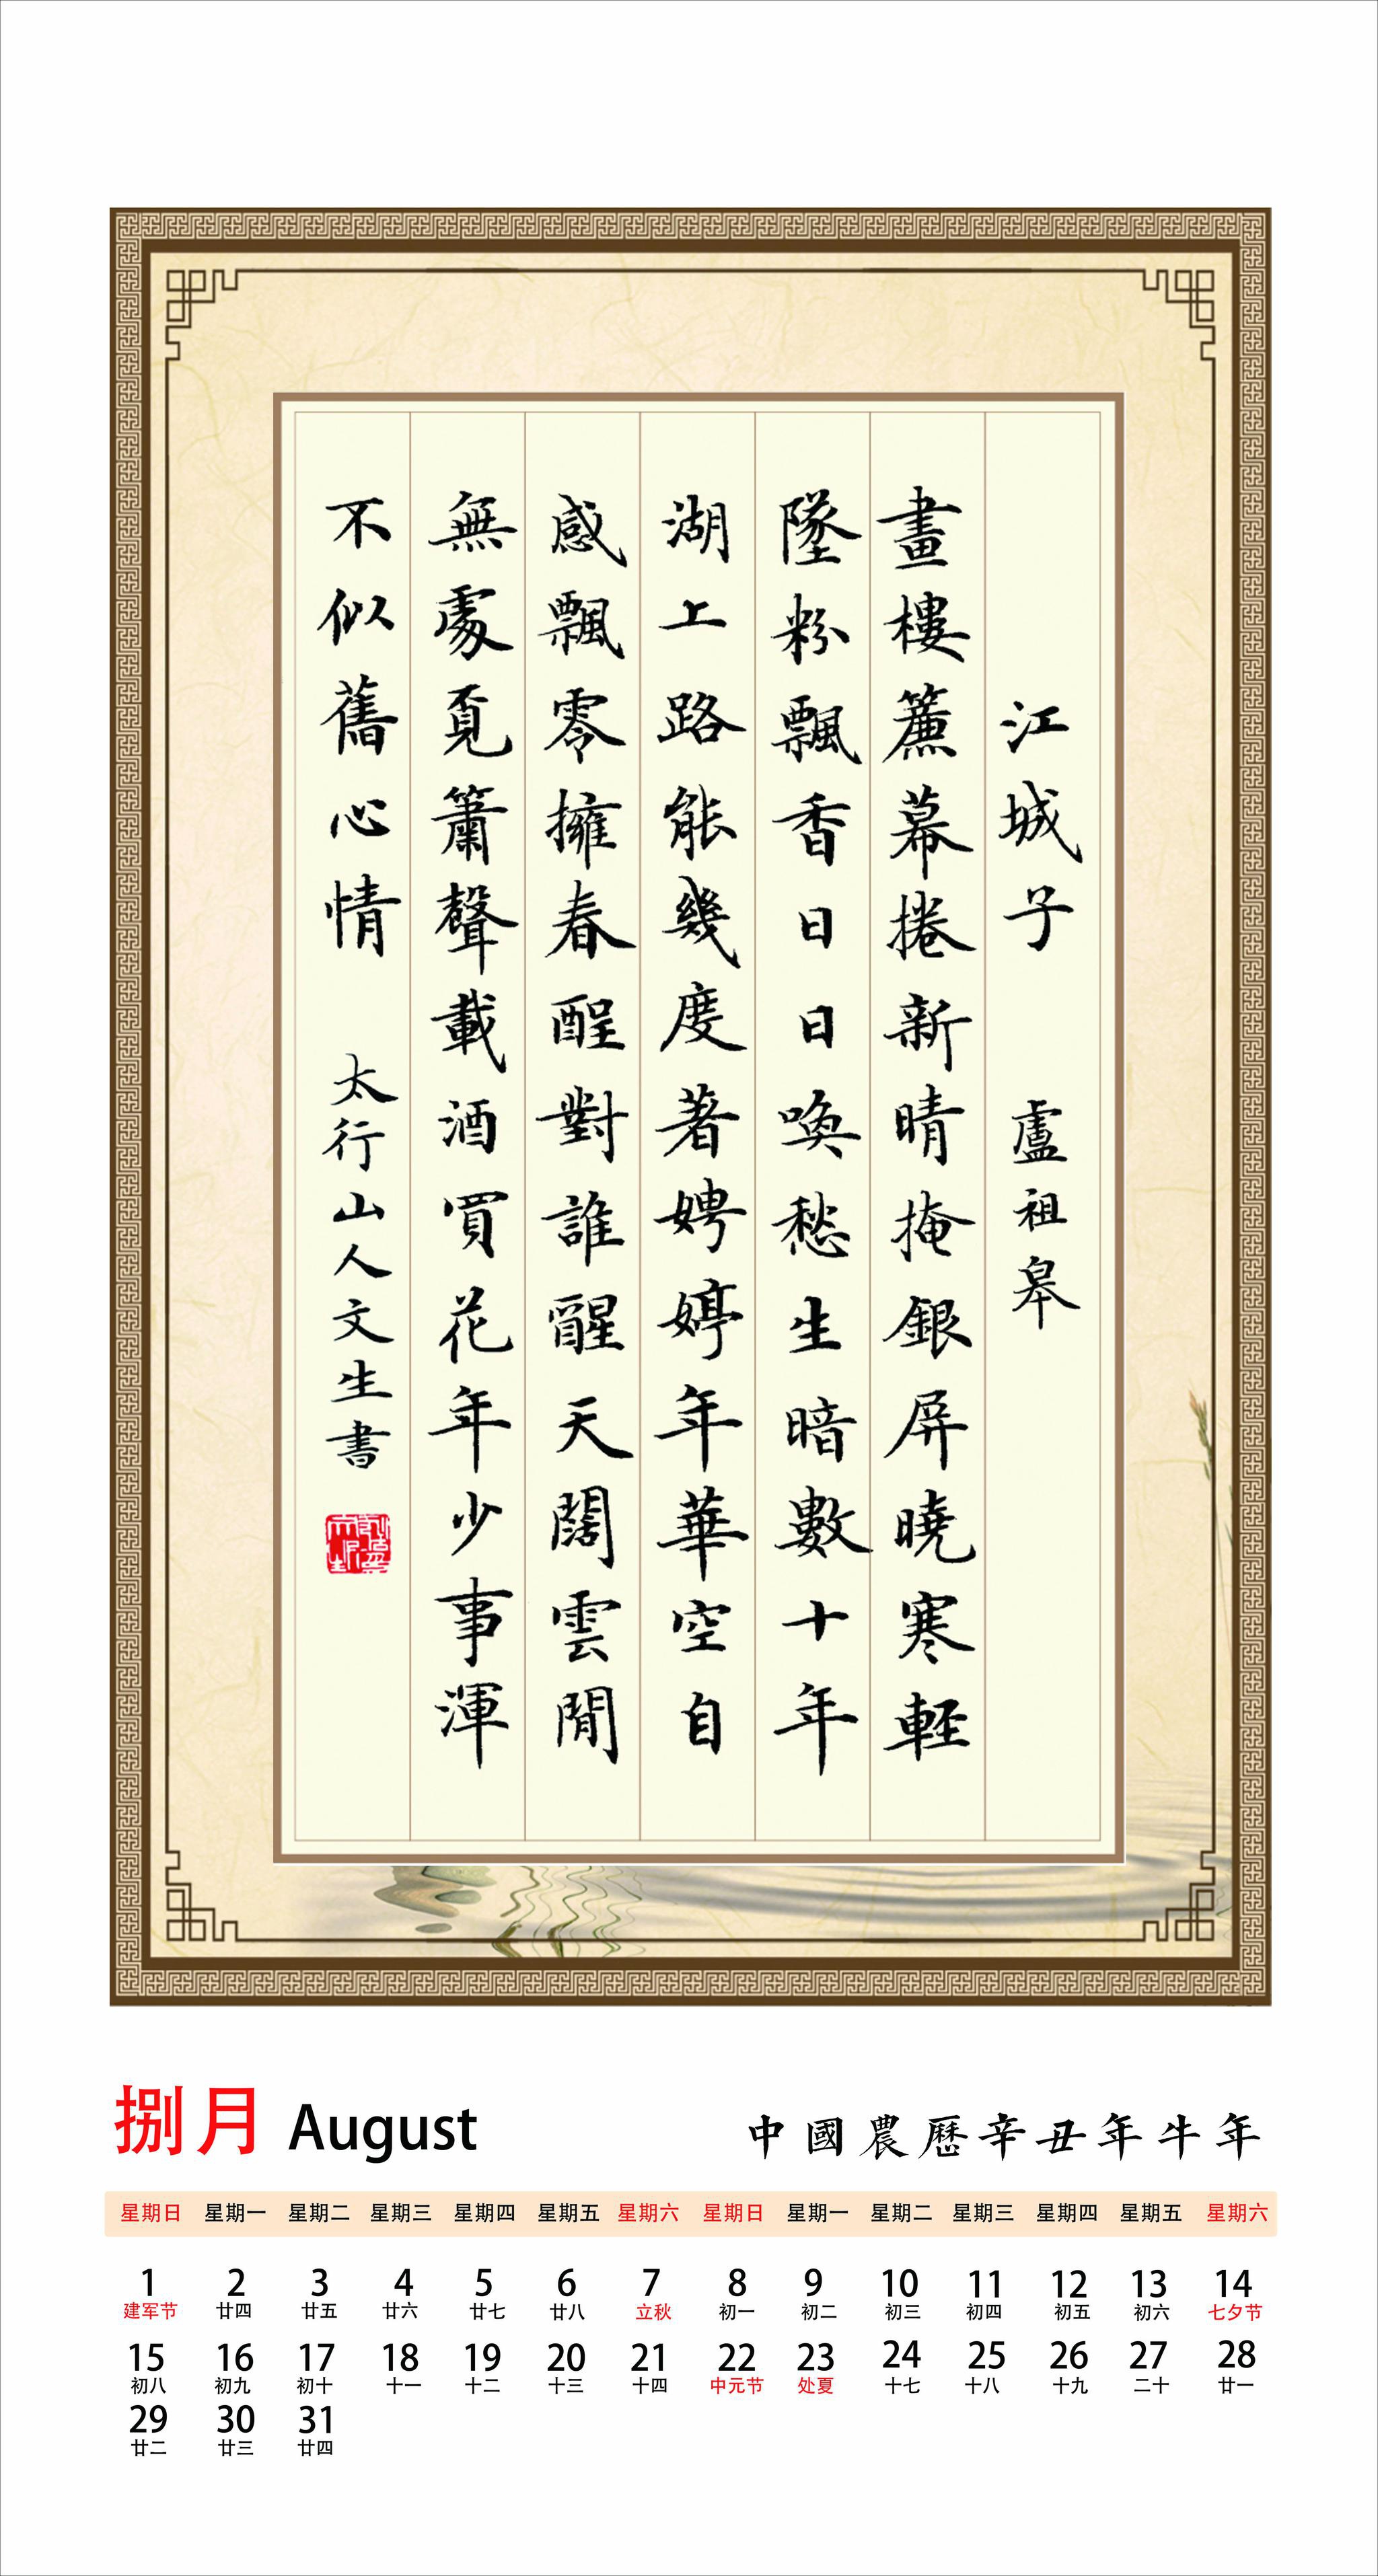 江城子 盧祖皋
畫樓簾幕捲新晴掩銀屏曉寒軽
墜粉飄香日日喚愁生暗數十年
湖上路能幾度著娉婷年華空自
感飄零擁春酲對誰醒天闊雲閒
無處覓簫聲載酒買花年少事渾
不似舊心情 太行山人文生書
捌月 August 中國農歷辛丑年牛年
星期日 星期一 星期二 星期三 星期四 星期五 星期六 星期日 星期一 星期二 星期三 星期四 星期五 星期六
1 2 3 4 5 6 7 8 9 10 11 12 13 14
建军节 廿四 廿五 廿六 廿七 廿八 立秋 初一 初二 初三 初四 初五 初六 七夕节
15 16 17 18 19 20 21 22 23 24 25 26 27 28
初八 初九 初十 十一 十二 十三 十四 中元节 处夏 十七 十八 十九 二十 廿一
29 30 31
廿二 廿三 廿四